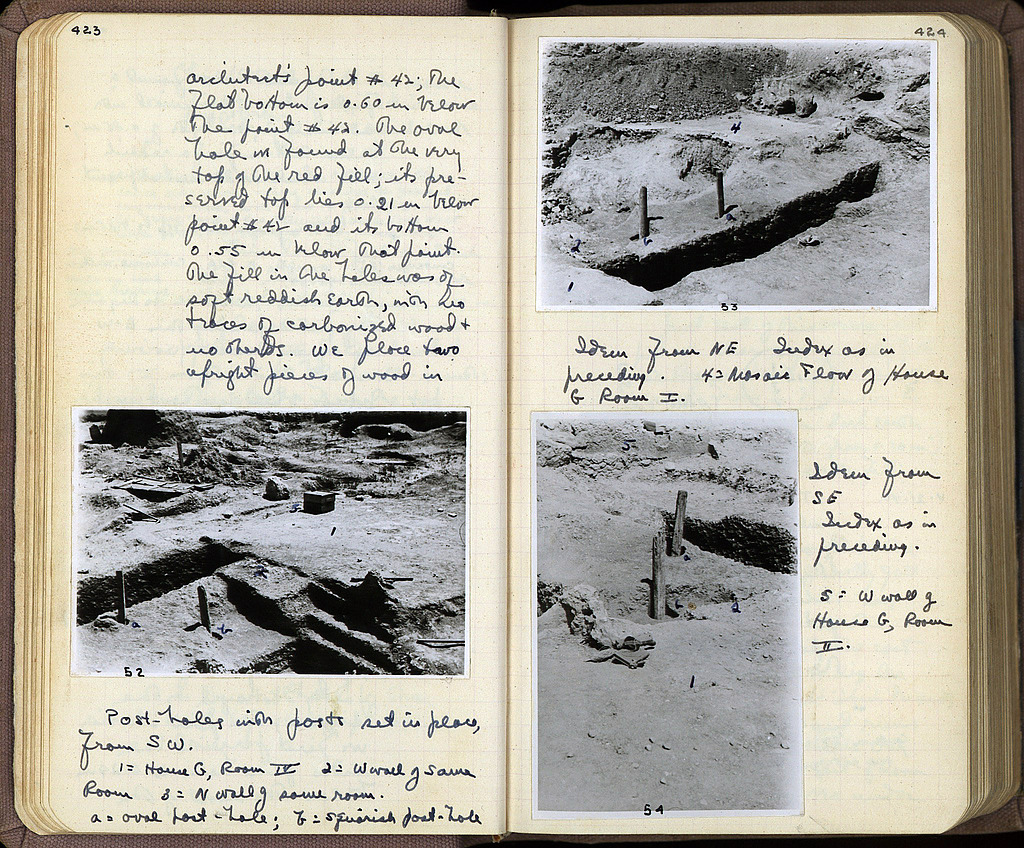 423
architect's point # 42; The
flat bottom is 0.60 m below
The point # 42. The oval
hole is found at the very
top of the red fill; its pre-
served top lies 0.21 m below
point # 42 and its bottom
0.55 m below that point.
The fill in the holes was of
soft reddish earth, with no
traces of carbonized wood +
no sherds. We place two
upright pieces of wood in
1
a
b
52
Post-holes with posts set in place,
from SW.
1 = House G, Room IV 2 = W wall of same
Room 3 = N wall of same room.
a = oval post-hole; b = squarish post-hole
424
4
a
b
2
1
53
Idem from NE Index as in
preceding. 4 = Mosaic Floor of House
G Room I.
5
a
b
2
1
54
Idem from
SE
Index as in
preceding.
5 = W wall of
House G, Room
II.